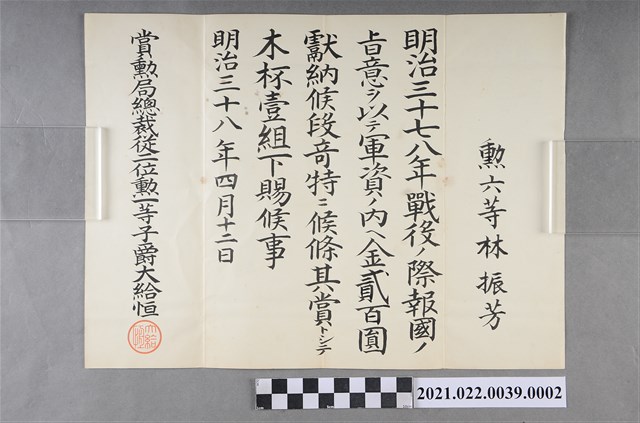 勲六等林振芳
明治三十七八年戰役ノ際報國ノ
旨意ヲ以テ軍資ノ内ヘ金貳百圓
獻納候段奇特ニ候條其賞トシテ
木杯壹組下賜候事
明治三十八年四月十二日
賞勲局總裁從二位勲一等子爵大給恒
2021.022.0039.0002